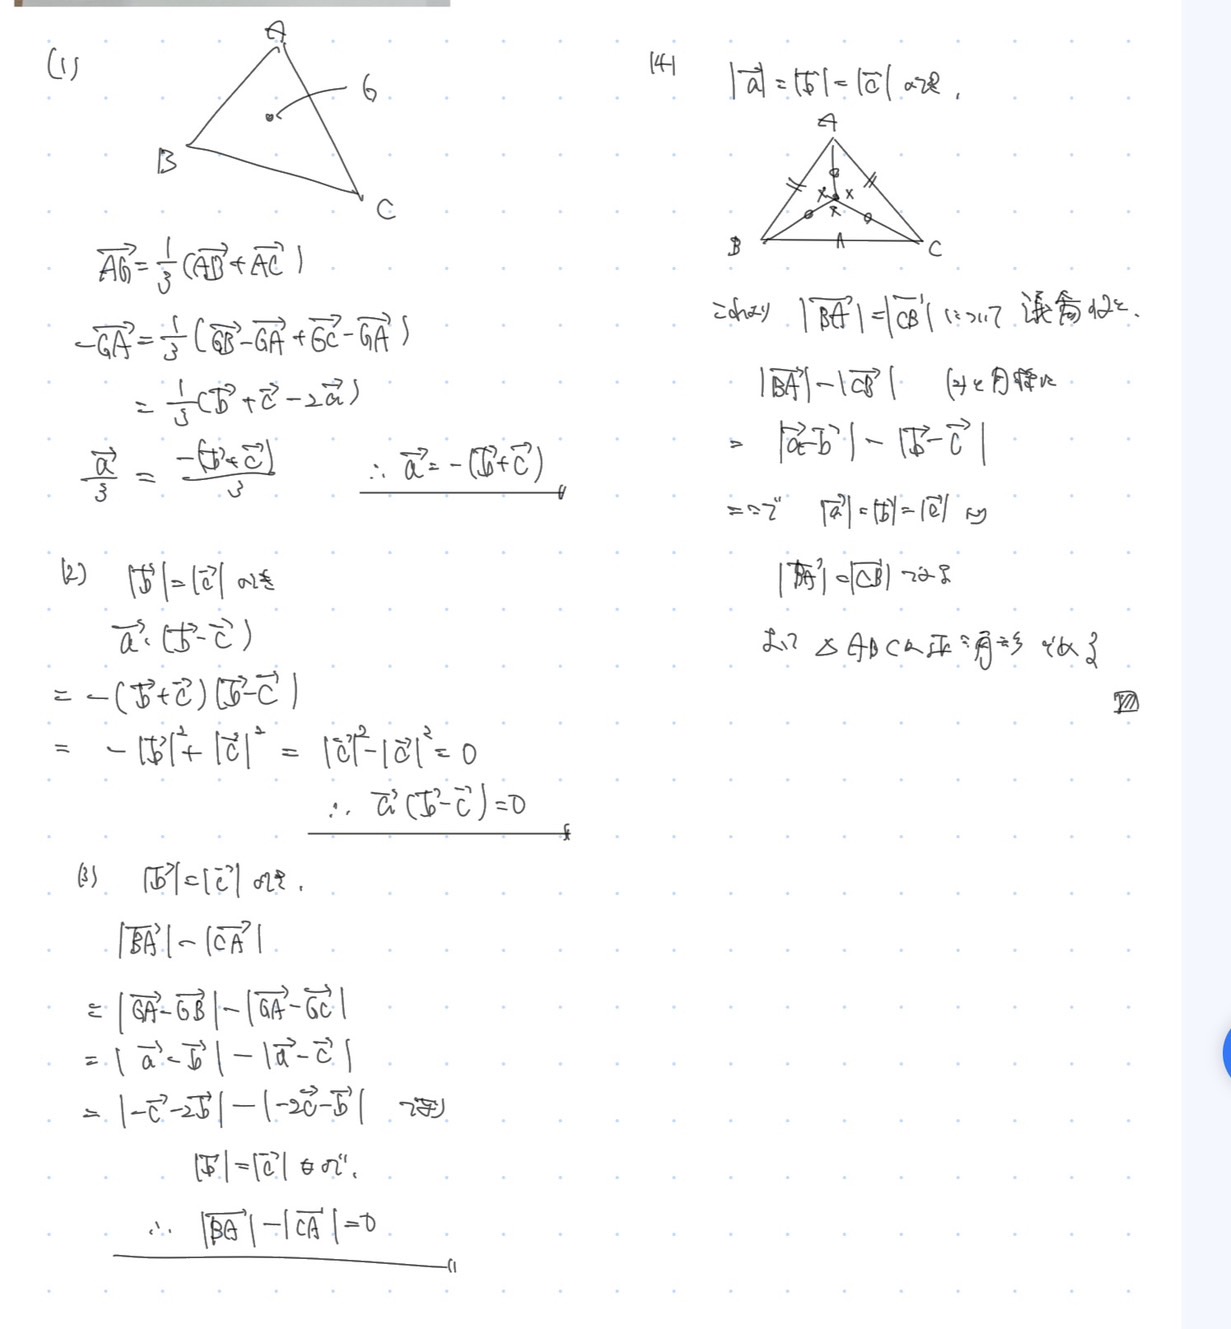 (1)
A
G
B
C
$\overrightarrow{AG}=\frac{1}{3}(\overrightarrow{AB}+\overrightarrow{AC})$
$-\overrightarrow{GA}=\frac{1}{3}(\overrightarrow{GB}-\overrightarrow{GA}+\overrightarrow{GC}-\overrightarrow{GA})$
$=\frac{1}{3}(\vec{b}+\vec{c}-2\vec{a})$
$\frac{\vec{a}}{3}=\frac{-(\vec{b}+\vec{c})}{3}$ ∴ $\vec{a}=-(\vec{b}+\vec{c})$
(2) $|\vec{b}|=|\vec{c}|$ のとき
$\vec{a}\cdot(\vec{b}-\vec{c})$
$=-(\vec{b}+\vec{c})(\vec{b}-\vec{c})$
$=-|\vec{b}|^2+|\vec{c}|^2=|\vec{c}|^2-|\vec{c}|^2=0$
∴ $\vec{a}(\vec{b}-\vec{c})=0$
(3) $|\vec{b}|=|\vec{c}|$ のとき,
$|\overrightarrow{BA}|-|\overrightarrow{CA}|$
$=|\overrightarrow{GA}-\overrightarrow{GB}|-|\overrightarrow{GA}-\overrightarrow{GC}|$
$=|\vec{a}-\vec{b}|-|\vec{a}-\vec{c}|$
$=|-\vec{c}-2\vec{b}|-|-2\vec{c}-\vec{b}|$ であり
$|\vec{b}|=|\vec{c}|$ なので,
∴ $|\overrightarrow{BA}|-|\overrightarrow{CA}|=0$
(4) $|\vec{a}|=|\vec{b}|=|\vec{c}|$ のとき,
A
B
C
これより $|\overrightarrow{BA}|=|\overrightarrow{CB}|$ について
$|\overrightarrow{BA}|-|\overrightarrow{CB}|$ と同様に
$=|\vec{a}-\vec{b}|-|\vec{b}-\vec{c}|$
ここで $|\vec{a}|=|\vec{b}|=|\vec{c}|$ より
$|\overrightarrow{BA}|=|\overrightarrow{CB}|$ である
よって △ABCは正三角形である